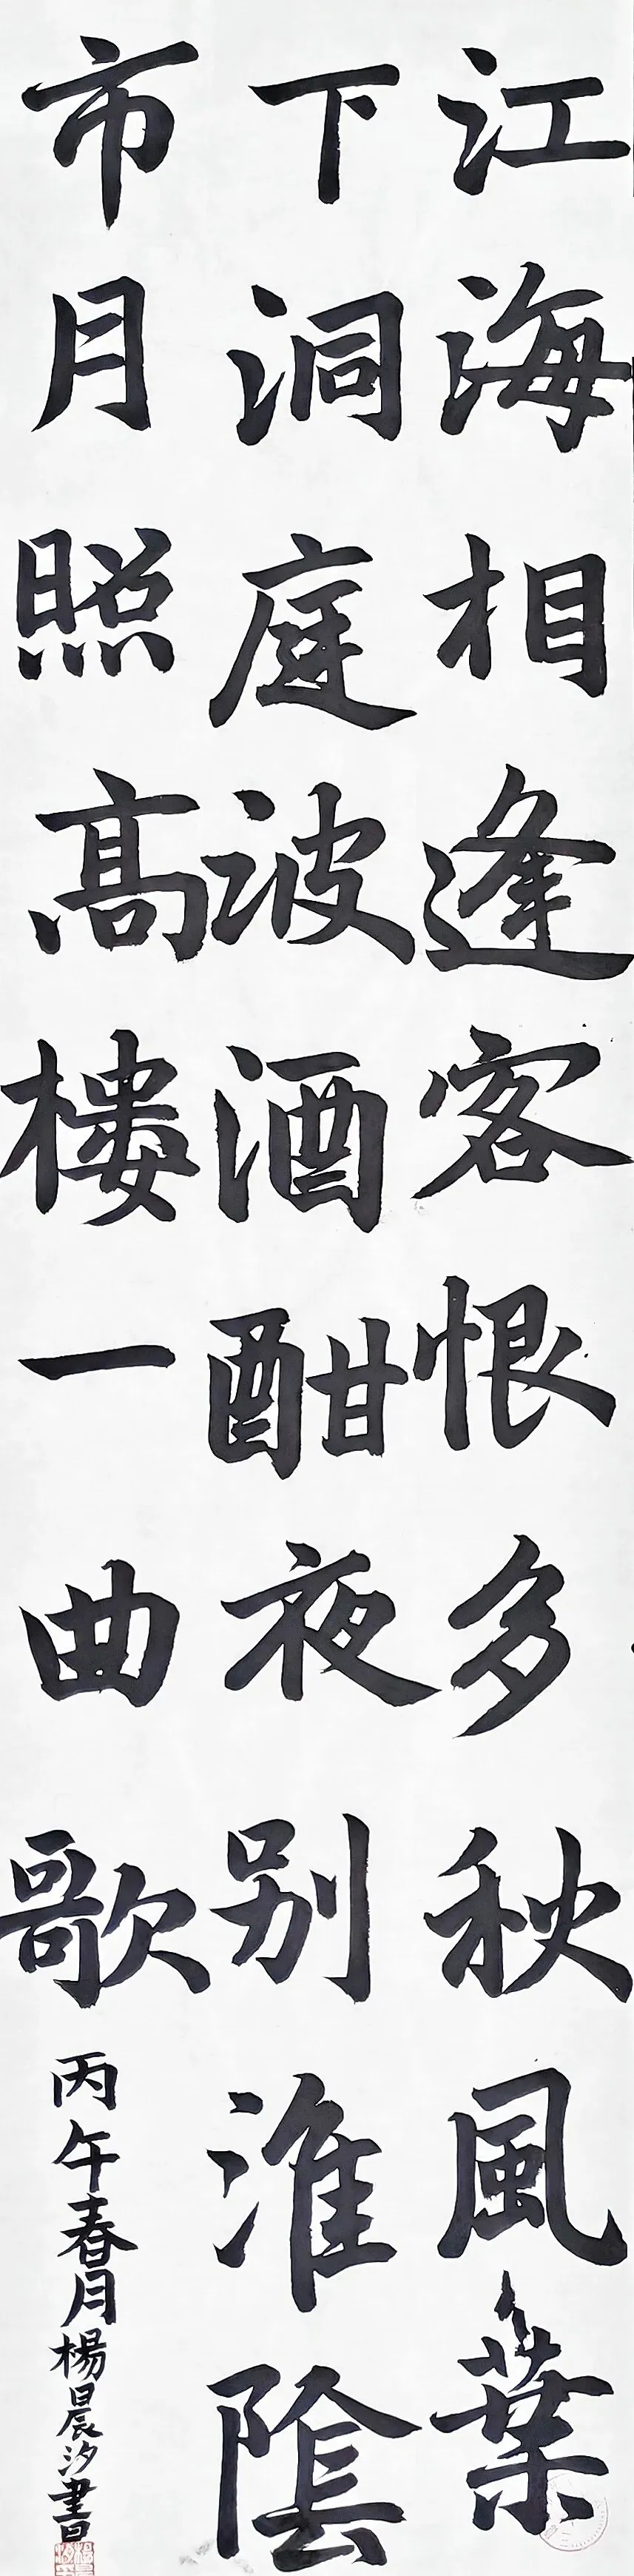 江海相逢客恨多秋風葉
下洞庭波酒酣夜别淮陰
市月照高樓一曲歌
丙午春月楊晨汐書